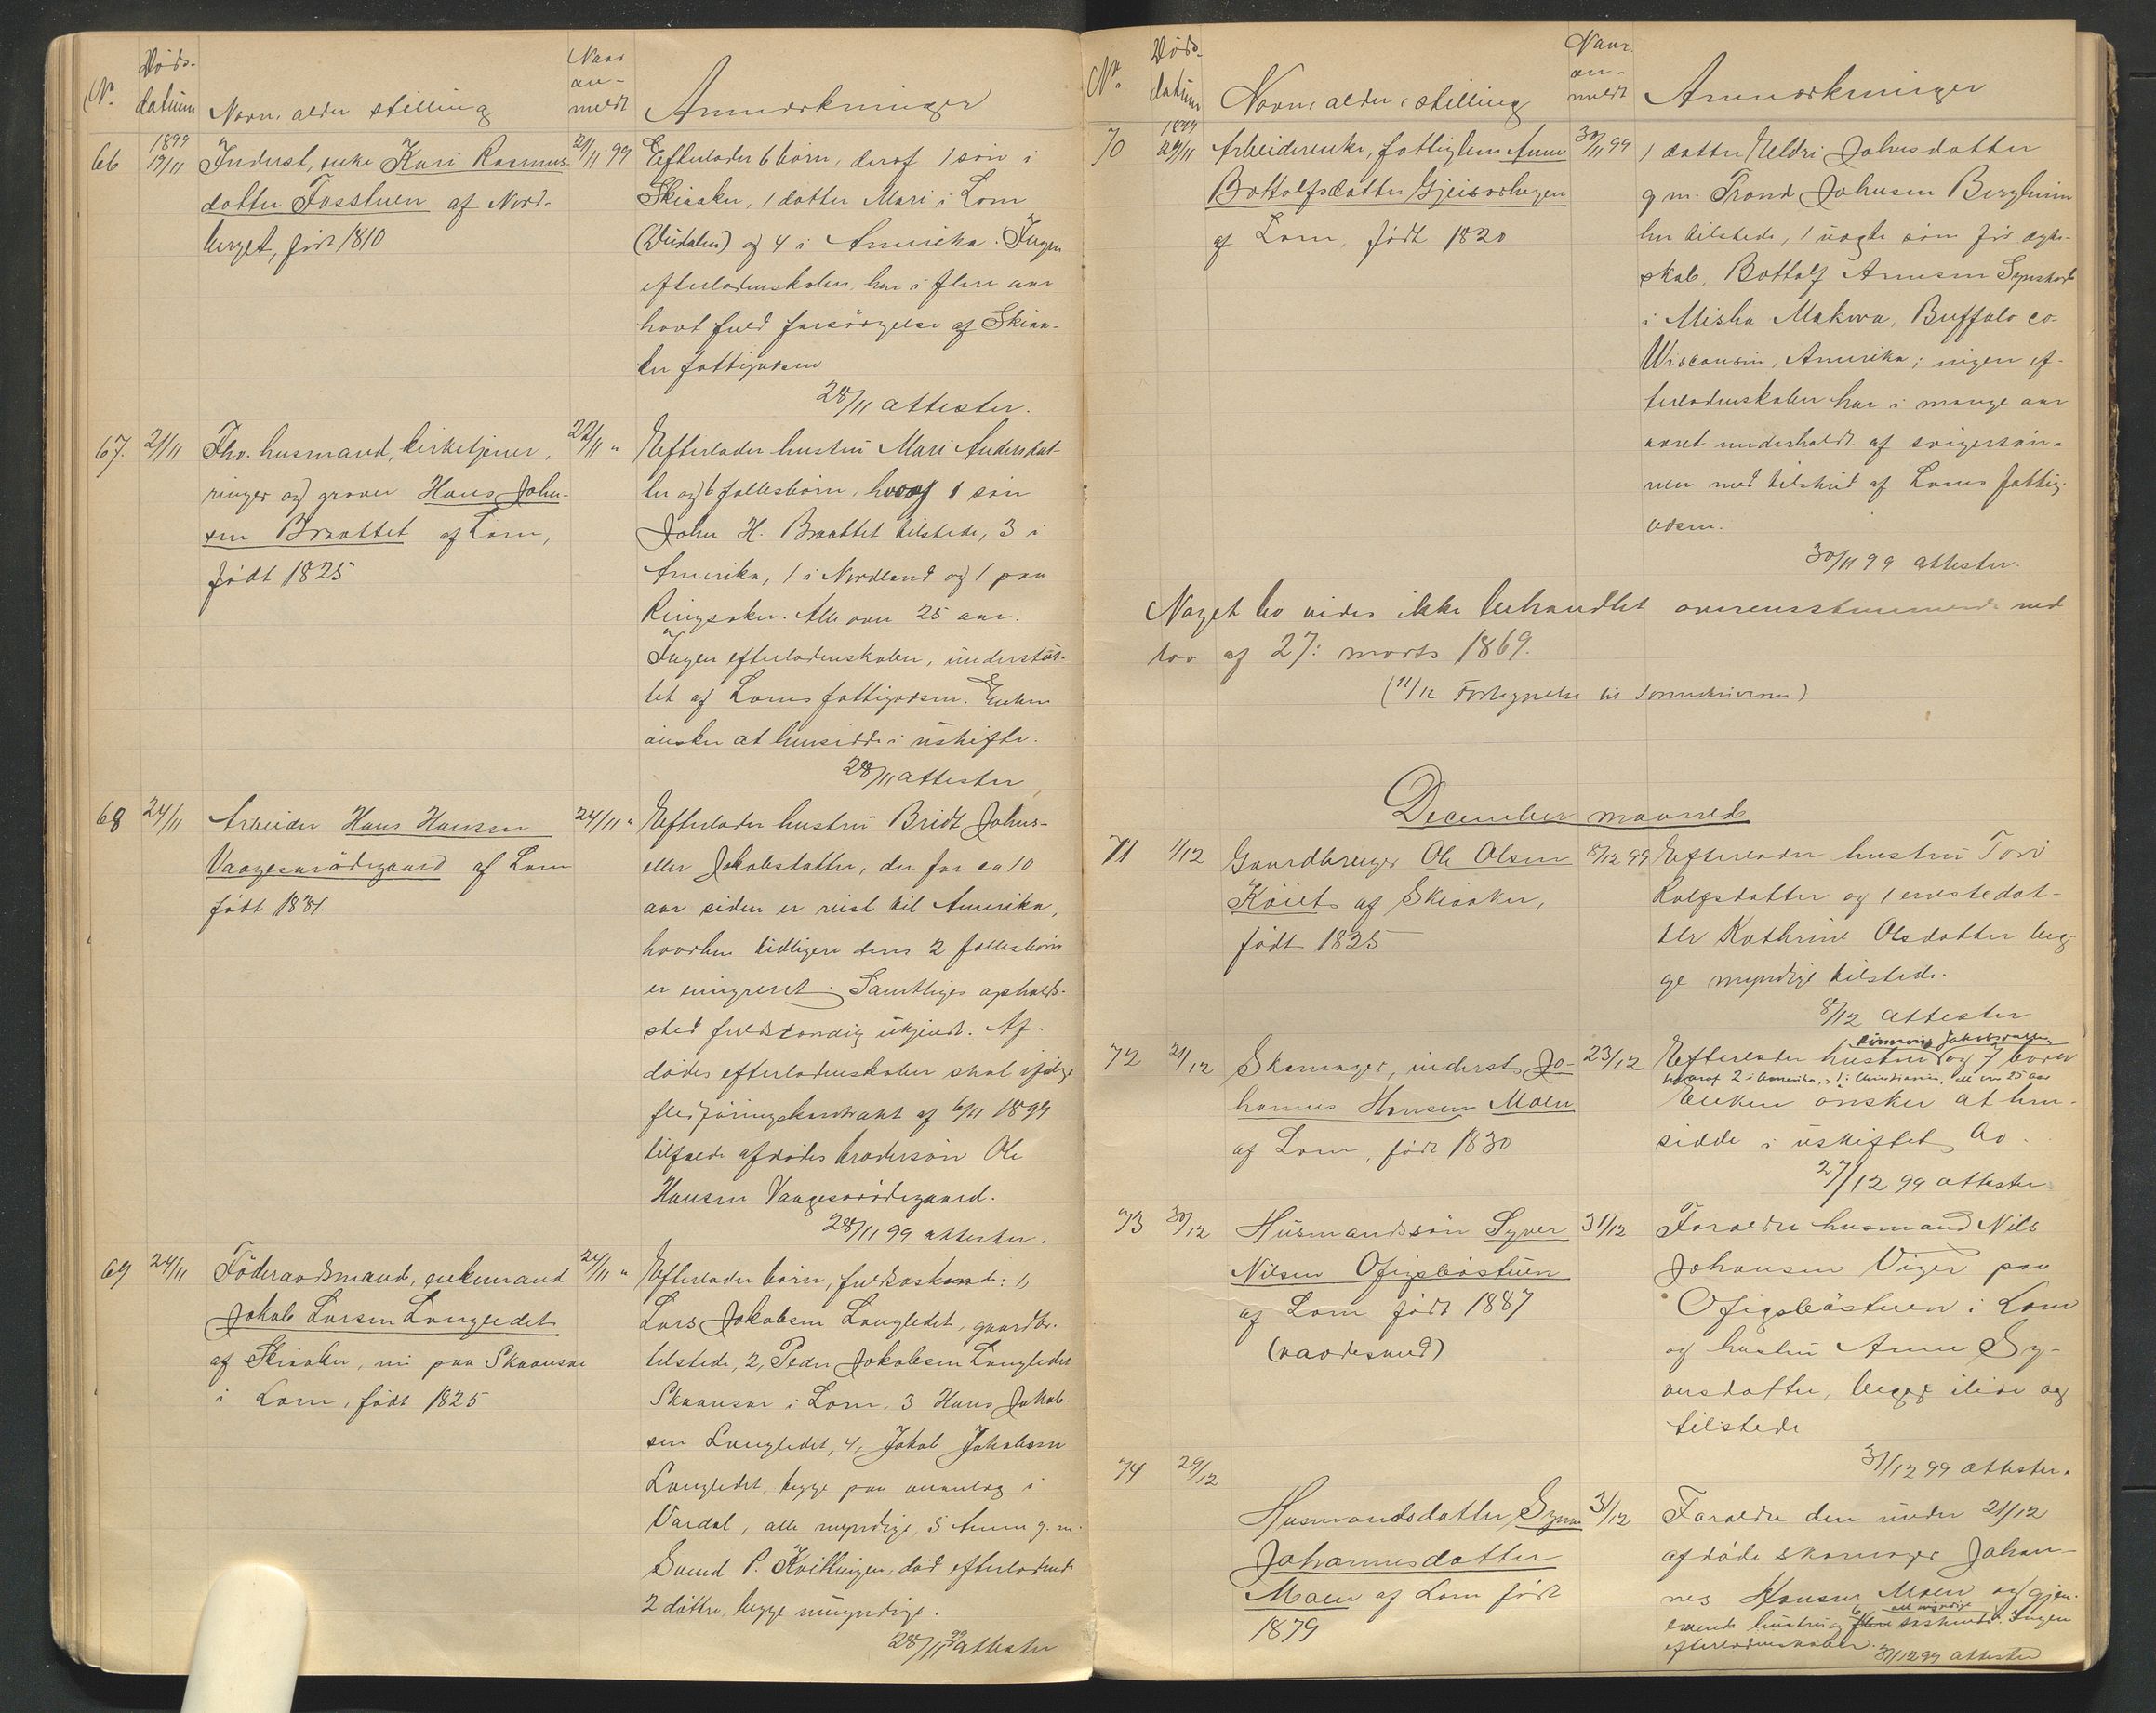 No.
Døds-
datum
Navn, alder stilling
Naar
an-
meldt
Anmærkninger
66
1899
19/11
Inderst, enke Kari Rasmus-
datter Fosstuen af Nord-
berget, født 1810
21/11 99
Efterlader 6 børn, deraf 1 søn i
Skiaaker, 1 datter Mari i Lom
og 4 i Amerika. Ingen
efterladenskaber, har i flere aar
havt fuld forsørgelse af Skiaa-
ker fattigvæsen
28/11 attester.
67.
21/11
Fhv. husmand, kirketjener,
ringer og graver Hans John-
sen Braattet af Lom,
født 1825
22/11 "
Efterlader hustru Mari Andersdat-
ter og 6 fællesbørn, hvoraf 1 søn
John H. Braattet tilstede, 3 i
Amerika, 1 i Nordland og 1 paa
Ringsaker. Alle over 25 aar.
Ingen efterladenskaber, understøt-
tet af Loms fattigvæsen. Enken
ønsker at hensidde i uskifte.
28/11 attester
68
24/11
Arbeider Hans Hansen
Vaagesaarødegaard af Lom
født 1831.
24/11 "
Efterlader hustru Bridt Johns-
eller Jakobsdatter, der for ca 10
aar siden er reist til Amerika,
hvorhen tidligere deres 2 fællesbørn
er emigreret. Samtliges opholds-
sted fuldstændig ukjendt. Af-
dødes efterladenskaber skal ifølge
flesføringskontrakt af 6/11 1899
tilfalde afdødes brodersøn Ole
Hansen Vaagesaarødegaard.
28/11 99 attester.
69
24/11
Føderaadsmand, enkemand
Jakob Larsen Langledet
af Skiaaker, nu paa Skaansar
i Lom, født 1825
24/11 "
Efterlader børn, fuldsøskende: 1,
Lars Jakobsen Langledet, gaardbr.
tilstede, 2, Peder Jakobsen Langledet
Skaansar i Lom, 3 Hans Jakob-
sen Langledet, 4, Jakob Jakobsen
Langledet, begge paa anlæg i
Vardal, alle myndige, 5 Anne g. m.
Svend P. Kvitlingen, død efterladende
2 døttre, begge umyndige.
28/11 99 attester
No.
Døds-
datum
Navn, alder, stilling
Naar
an-
meldt
Anmærkninger
70
1899
29/11
Arbeiderenke, fattiglem Anne
Bottolfsdatter Gjeisarhagen
af Lom, født 1820
30/11 99
1 datter Eldri Johnsdatter
g. m. Trond Johnsen Bergheim
her tilstede, 1 uægte søn før ægte-
skab, Bottolf Arnesen Synstad
i Misha Mokwa, Buffalo co
Wisconsin, Amerika; ingen ef-
terladenskaber har i mange aar
været underholdt af svigersøn-
nen med tilskud af Loms fattig-
væsen.
30/11 99 attester.
Noget bo vides ikke behandlet overensstemmende med
lov af 27: marts 1869.
(11/12 Fortegnelse til sorenskriveren)
December maaned
71
1/12
Gaardbruger Ole Olsen
Kviet af Skiaaker,
født 1825
8/12 99
Efterlader hustru Tori
Rolfsdatter og 1 eneste dat-
ter Kathrine Olsdatter beg-
ge myndige tilstede.
8/12 attester
72
21/12
Skomager, inderst Jo-
hannes Hansen Moen
af Lom, født 1830
23/12
Jakobsdatter
Efterlader hustru og 7 børn
hvoraf 2 i Amerika, 1 i Christiania, alle over 25 aar
Enken ønsker at hen-
sidde i uskiftet bo.
27/12 99 attester
73
30/12
Husmandssøn Syver
Nilsen Ofigsbøstuen
af Lom født 1887
(vaadesaud)
31/12
Forældre husmand Nils
Johansen Viger paa
Ofigsbøstuen i Lom
og hustru Anne Sy-
versdatter, begge ilive og
tilstede
31/12 99 attester.
74
29/12
Husmandsdatter Synne
Johannesdatter
Moen af Lom født
1879
31/12
Forældre den under 21/12
afdøde skomager Johan-
nes Hansen Moen og gjen-
alle myndige
levende hustru og 6 søskende. Ingen
efterladenskaber.
31/12 99 attester